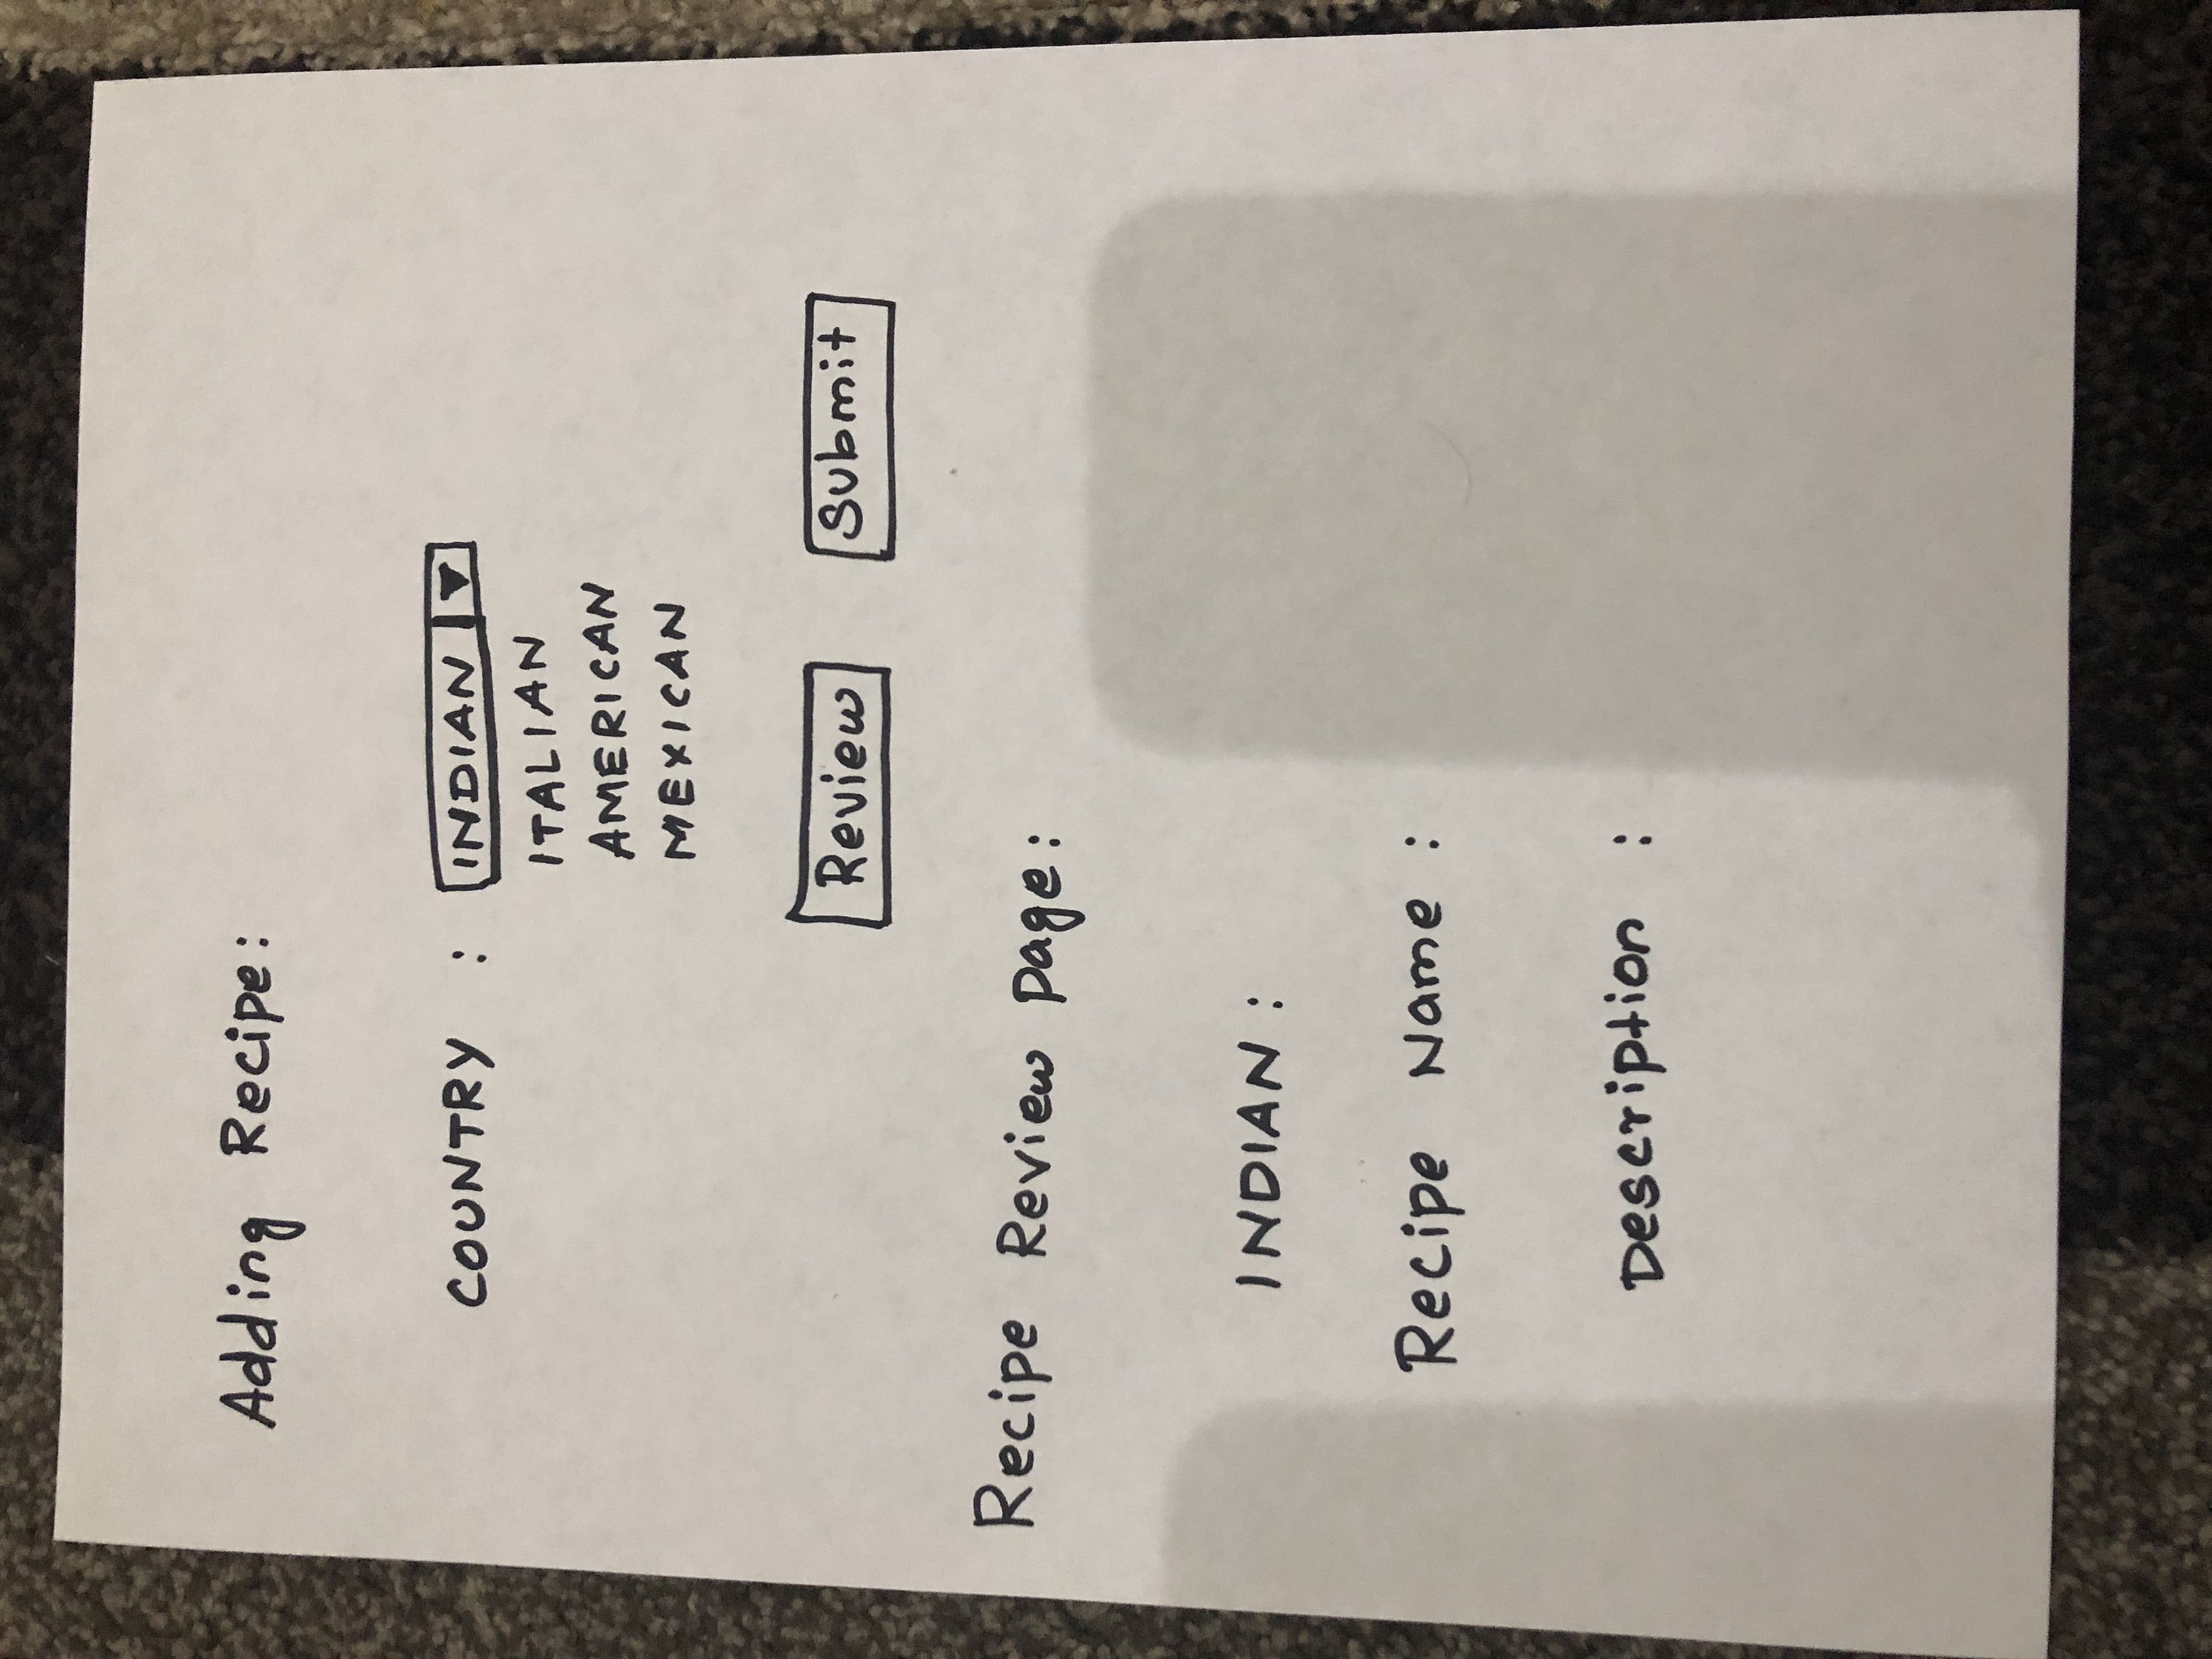 Adding Recipe:
COUNTRY : INDIAN
ITALIAN
AMERICAN
MEXICAN
Review Submit
Recipe Review Page:
INDIAN :
Recipe Name :
Description :